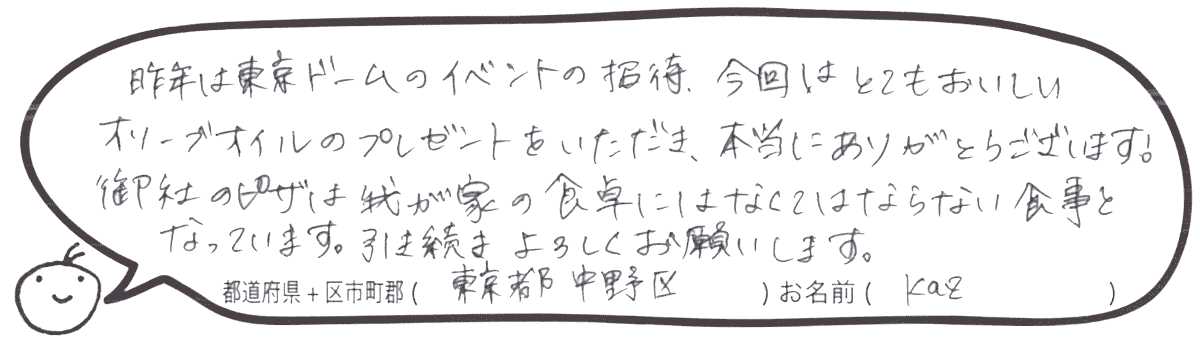 昨年は東京ドームのイベントの招待、今回はとてもおいしい
オリーブオイルのプレゼントをいただき、本当にありがとうございます!
御社のピザは我が家の食卓にはなくてはならない食事と
なっています。引き続きよろしくお願いします。
都道府県+区市町郡(東京都中野区)お名前(kaz)